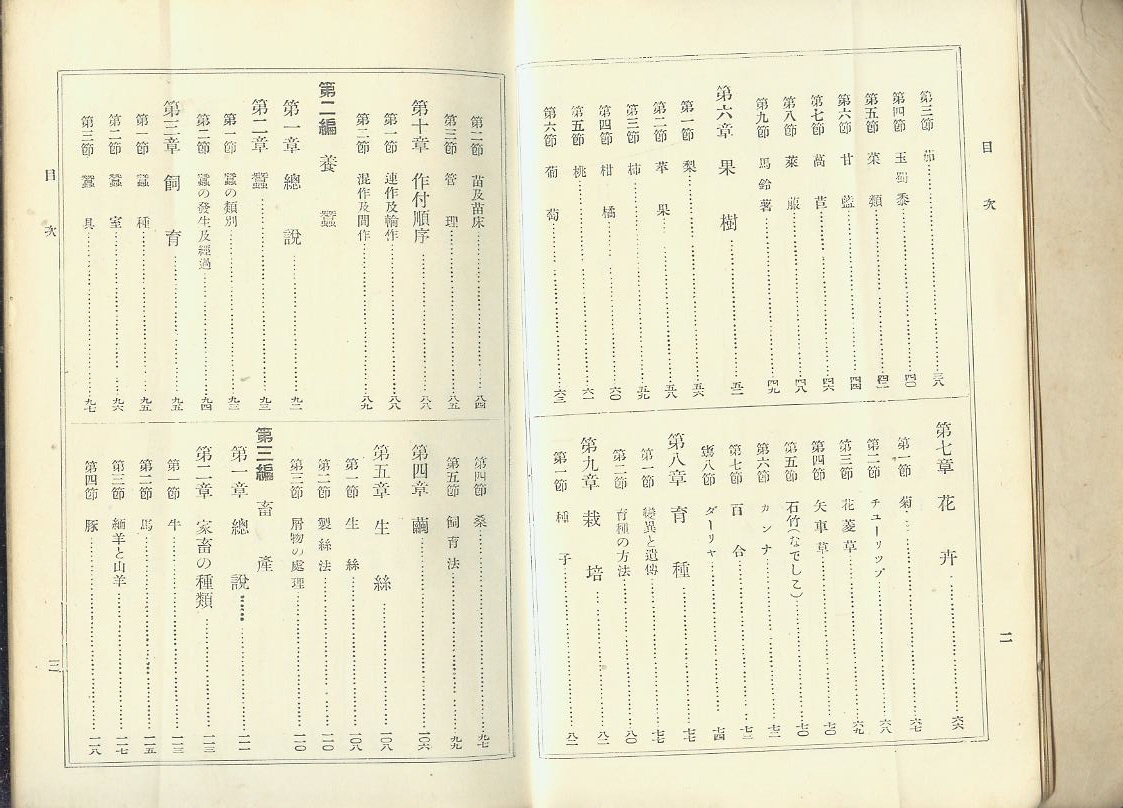 目次
二
第三節 茄……三八
第四節 玉蜀黍……四〇
第五節 菜類……四二
第六節 甘藍……四四
第七節 萵苣……四六
第八節 萊服……四八
第九節 馬鈴薯……四九
第六章 果樹……五二
第一節 梨……五六
第二節 苹果……五八
第三節 柿……五九
第四節 柑橘……六〇
第五節 桃……六一
第六節 葡萄……六三
第七章 花卉……六六
第一節 菊……六七
第二節 チューリップ……六八
第三節 花菱草……六九
第四節 矢車草……七〇
第五節 石竹(なでしこ)……七〇
第六節 カンナ……七二
第七節 百合……七三
第八節 ダーリヤ……七四
第八章 育種……七七
第一節 變異と遺傳……七七
第二節 育種の方法……八〇
第九章 栽培……八二
第一節 種子……八二
目次
三
第二節 苗及苗床……八四
第三節 管理……八五
第十章 作付順序……八八
第一節 連作及輪作……八八
第二節 混作及間作……八九
第二編 養蠶
第一章 總說……九二
第二章 蠶……九三
第一節 蠶の類別……九三
第二節 蠶の發生及經過……九四
第三章 飼育……九五
第一節 蠶種……九五
第二節 蠶室……九六
第三節 蠶具……九七
第四節 桑……九七
第五節 飼育法……九九
第四章 繭……一〇六
第五章 生絲……一〇八
第一節 生絲……一〇八
第二節 製絲法……一一〇
第三節 屑物の處理……一一〇
第三編 畜產
第一章 總說……一一一
第二章 家畜の種類……一一三
第一節 牛……一一三
第二節 馬……一一五
第三節 緬羊と山羊……一一七
第四節 豚……一一八